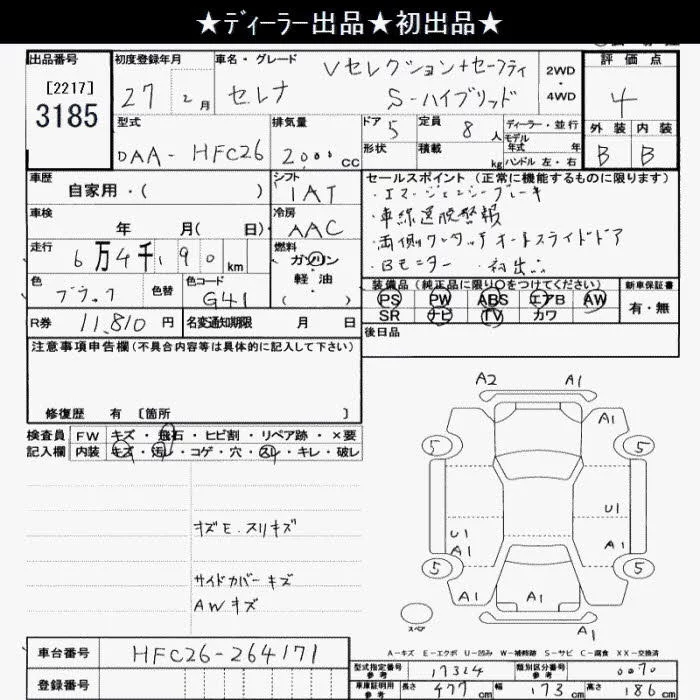 ★ディーラー出品★初出品★
出品番号
[2217]
3185
初度登録年月
27 2月
車名・グレード
セレナ
Vセレクション+セーフティ
S-ハイブリッド
2WD
・
4WD
評価点
4
外装 内装
B B
型式
DAA-HFC26
排気量
2000cc
ドア 5
形状
定員 8人
積載 kg
ディーラー・並行
モデル年式 年
ハンドル 左・右
車歴
自家用・( )
シフト
IAT
車検
年 月( 日)
冷房
AAC
走行
6万4千190km
燃料
ガソリン
・
軽油
( )
色
ブラック
色替
色コード
G41
R券 11,810円
名変通知期限 月 日
セールスポイント (正常に機能するものに限ります)
・エマージェンシーブレーキ
・車線逸脱警報
・両側ワンタッチオートスライドドア
・Bモニター ・初出品
装備品(純正品に限り○をつけてください)
PS PW ABS エアB AW
SR ナビ TV カワ
新車保証書
有・無
後日品
注意事項申告欄(不具合内容等は具体的に記入して下さい)
修復歴 有 〔箇所 〕
検査員
記入欄
FW キズ・飛石・ヒビ割・リペア跡・×要
内装 キズ・汚レ・コゲ・穴・スレ・キレ・破レ
キズE.スリキズ
サイドカバーキズ
AWキズ
A2 A1
A1
5 5
U1
A1
U1
A1
5 5
A1 A1 A1
A1
スペア
A-キズ E-エクボ U-凹み W-補修跡 S-サビ C-腐食 XX-交換済
車台番号 HFC26-264171
登録番号
型式指定番号
参考
17324
類別区分番号
参考
0070
車庫証明用
参考
長さ 477cm
幅 173cm
高さ 186cm